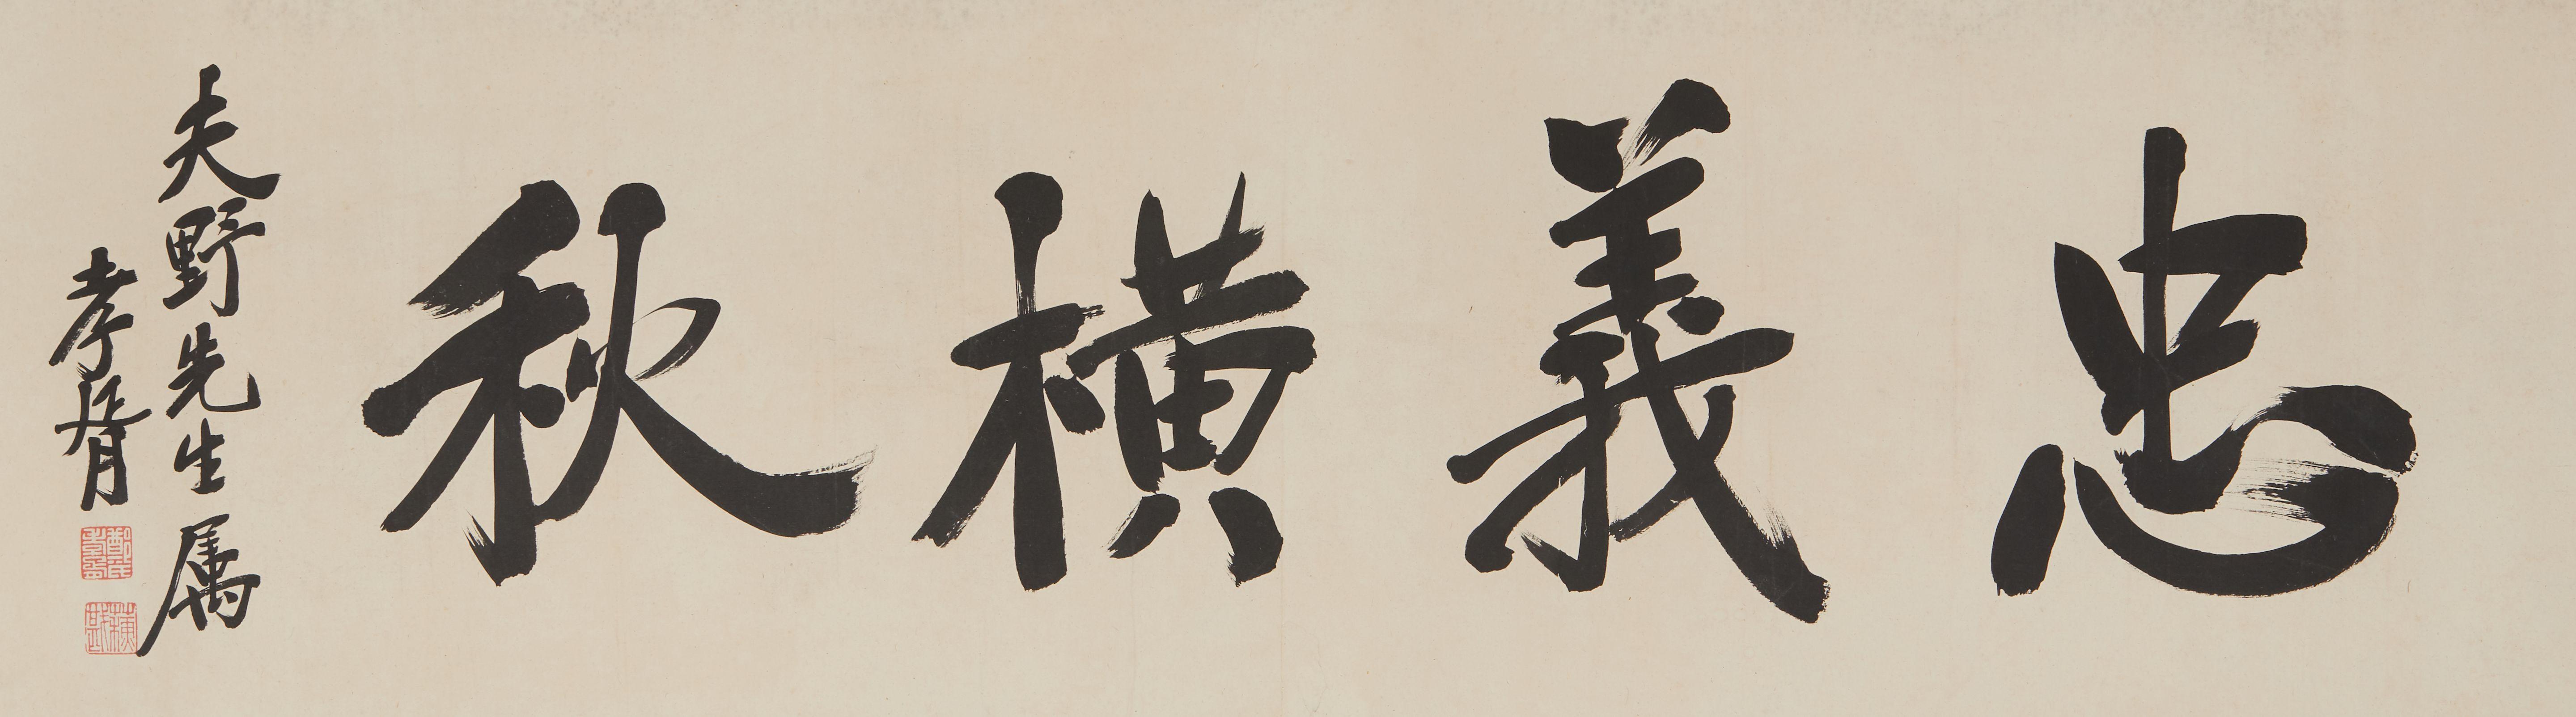 忠義橫秋
夫野先生属
孝胥